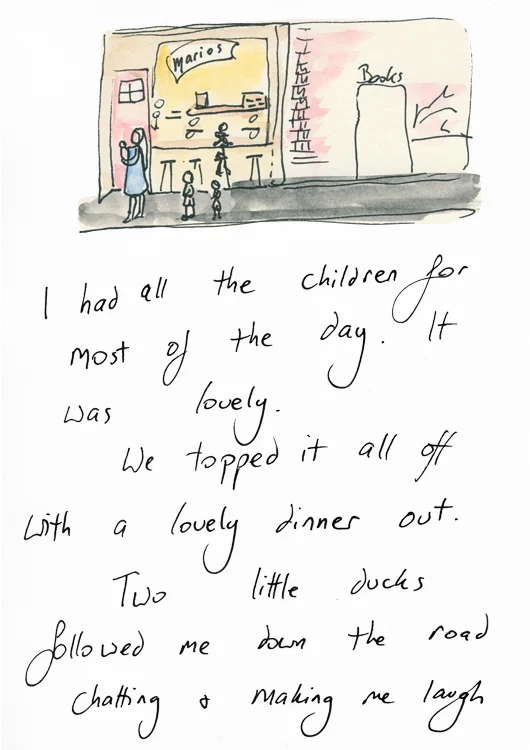 Marios
Books
I had all the children for
most of the day. It
was lovely.
We topped it all off
with a lovely dinner out.
Two little ducks
followed me down the road
chatting & making me laugh